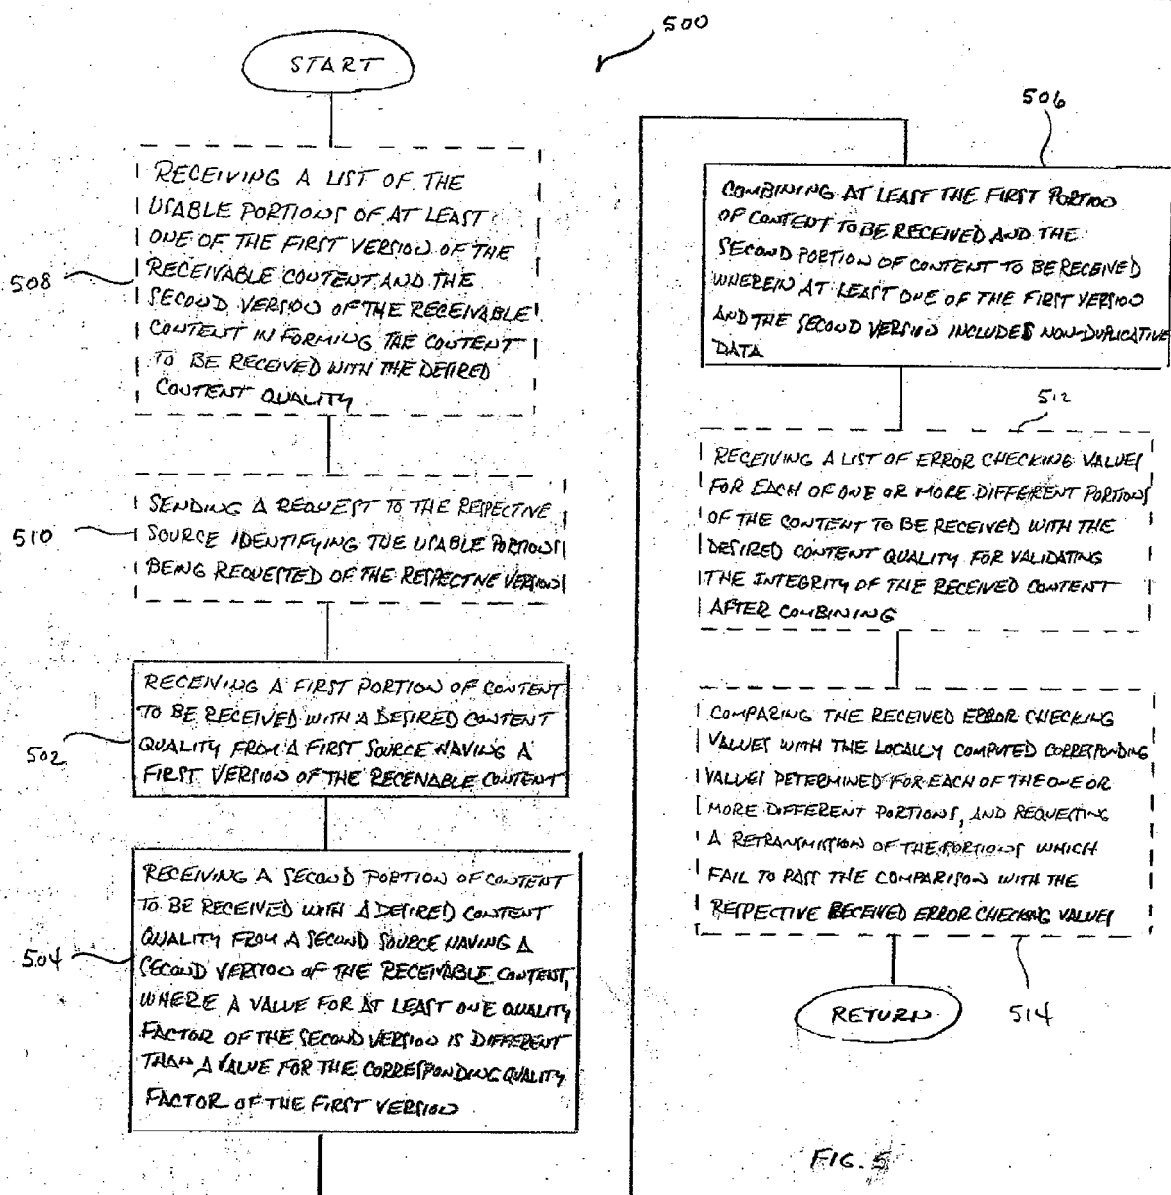 500
START
RECEIVING A LIST OF THE
USABLE PORTIONS OF AT LEAST
ONE OF THE FIRST VERSION OF THE
RECEIVABLE CONTENT AND THE
SECOND VERSION OF THE RECEIVABLE
CONTENT IN FORMING THE CONTENT
TO BE RECEIVED WITH THE DESIRED
CONTENT QUALITY
508
SENDING A REQUEST TO THE RESPECTIVE
SOURCE IDENTIFYING THE USABLE PORTIONS
BEING REQUESTED OF THE RESPECTIVE VERSION
510
RECEIVING A FIRST PORTION OF CONTENT
TO BE RECEIVED WITH A DESIRED CONTENT
QUALITY FROM A FIRST SOURCE HAVING A
FIRST VERSION OF THE RECEIVABLE CONTENT
502
RECEIVING A SECOND PORTION OF CONTENT
TO BE RECEIVED WITH A DESIRED CONTENT
QUALITY FROM A SECOND SOURCE HAVING A
SECOND VERSION OF THE RECEIVABLE CONTENT,
WHERE A VALUE FOR AT LEAST ONE QUALITY
FACTOR OF THE SECOND VERSION IS DIFFERENT
THAN A VALUE FOR THE CORRESPONDING QUALITY
FACTOR OF THE FIRST VERSION
504
506
COMBINING AT LEAST THE FIRST PORTION
OF CONTENT TO BE RECEIVED AND THE
SECOND PORTION OF CONTENT TO BE RECEIVED
WHEREIN AT LEAST ONE OF THE FIRST VERSION
AND THE SECOND VERSION INCLUDES NON-DUPLICATIVE
DATA
512
RECEIVING A LIST OF ERROR CHECKING VALUES
FOR EACH OF ONE OR MORE DIFFERENT PORTIONS
OF THE CONTENT TO BE RECEIVED WITH THE
DESIRED CONTENT QUALITY FOR VALIDATING
THE INTEGRITY OF THE RECEIVED CONTENT
AFTER COMBINING
COMPARING THE RECEIVED ERROR CHECKING
VALUES WITH THE LOCALLY COMPUTED CORRESPONDING
VALUES DETERMINED FOR EACH OF THE ONE OR
MORE DIFFERENT PORTIONS, AND REQUESTING
A RETRANSMISSION OF THE PORTIONS WHICH
FAIL TO PASS THE COMPARISON WITH THE
RESPECTIVE RECEIVED ERROR CHECKING VALUES
514
RETURN
FIG. 5